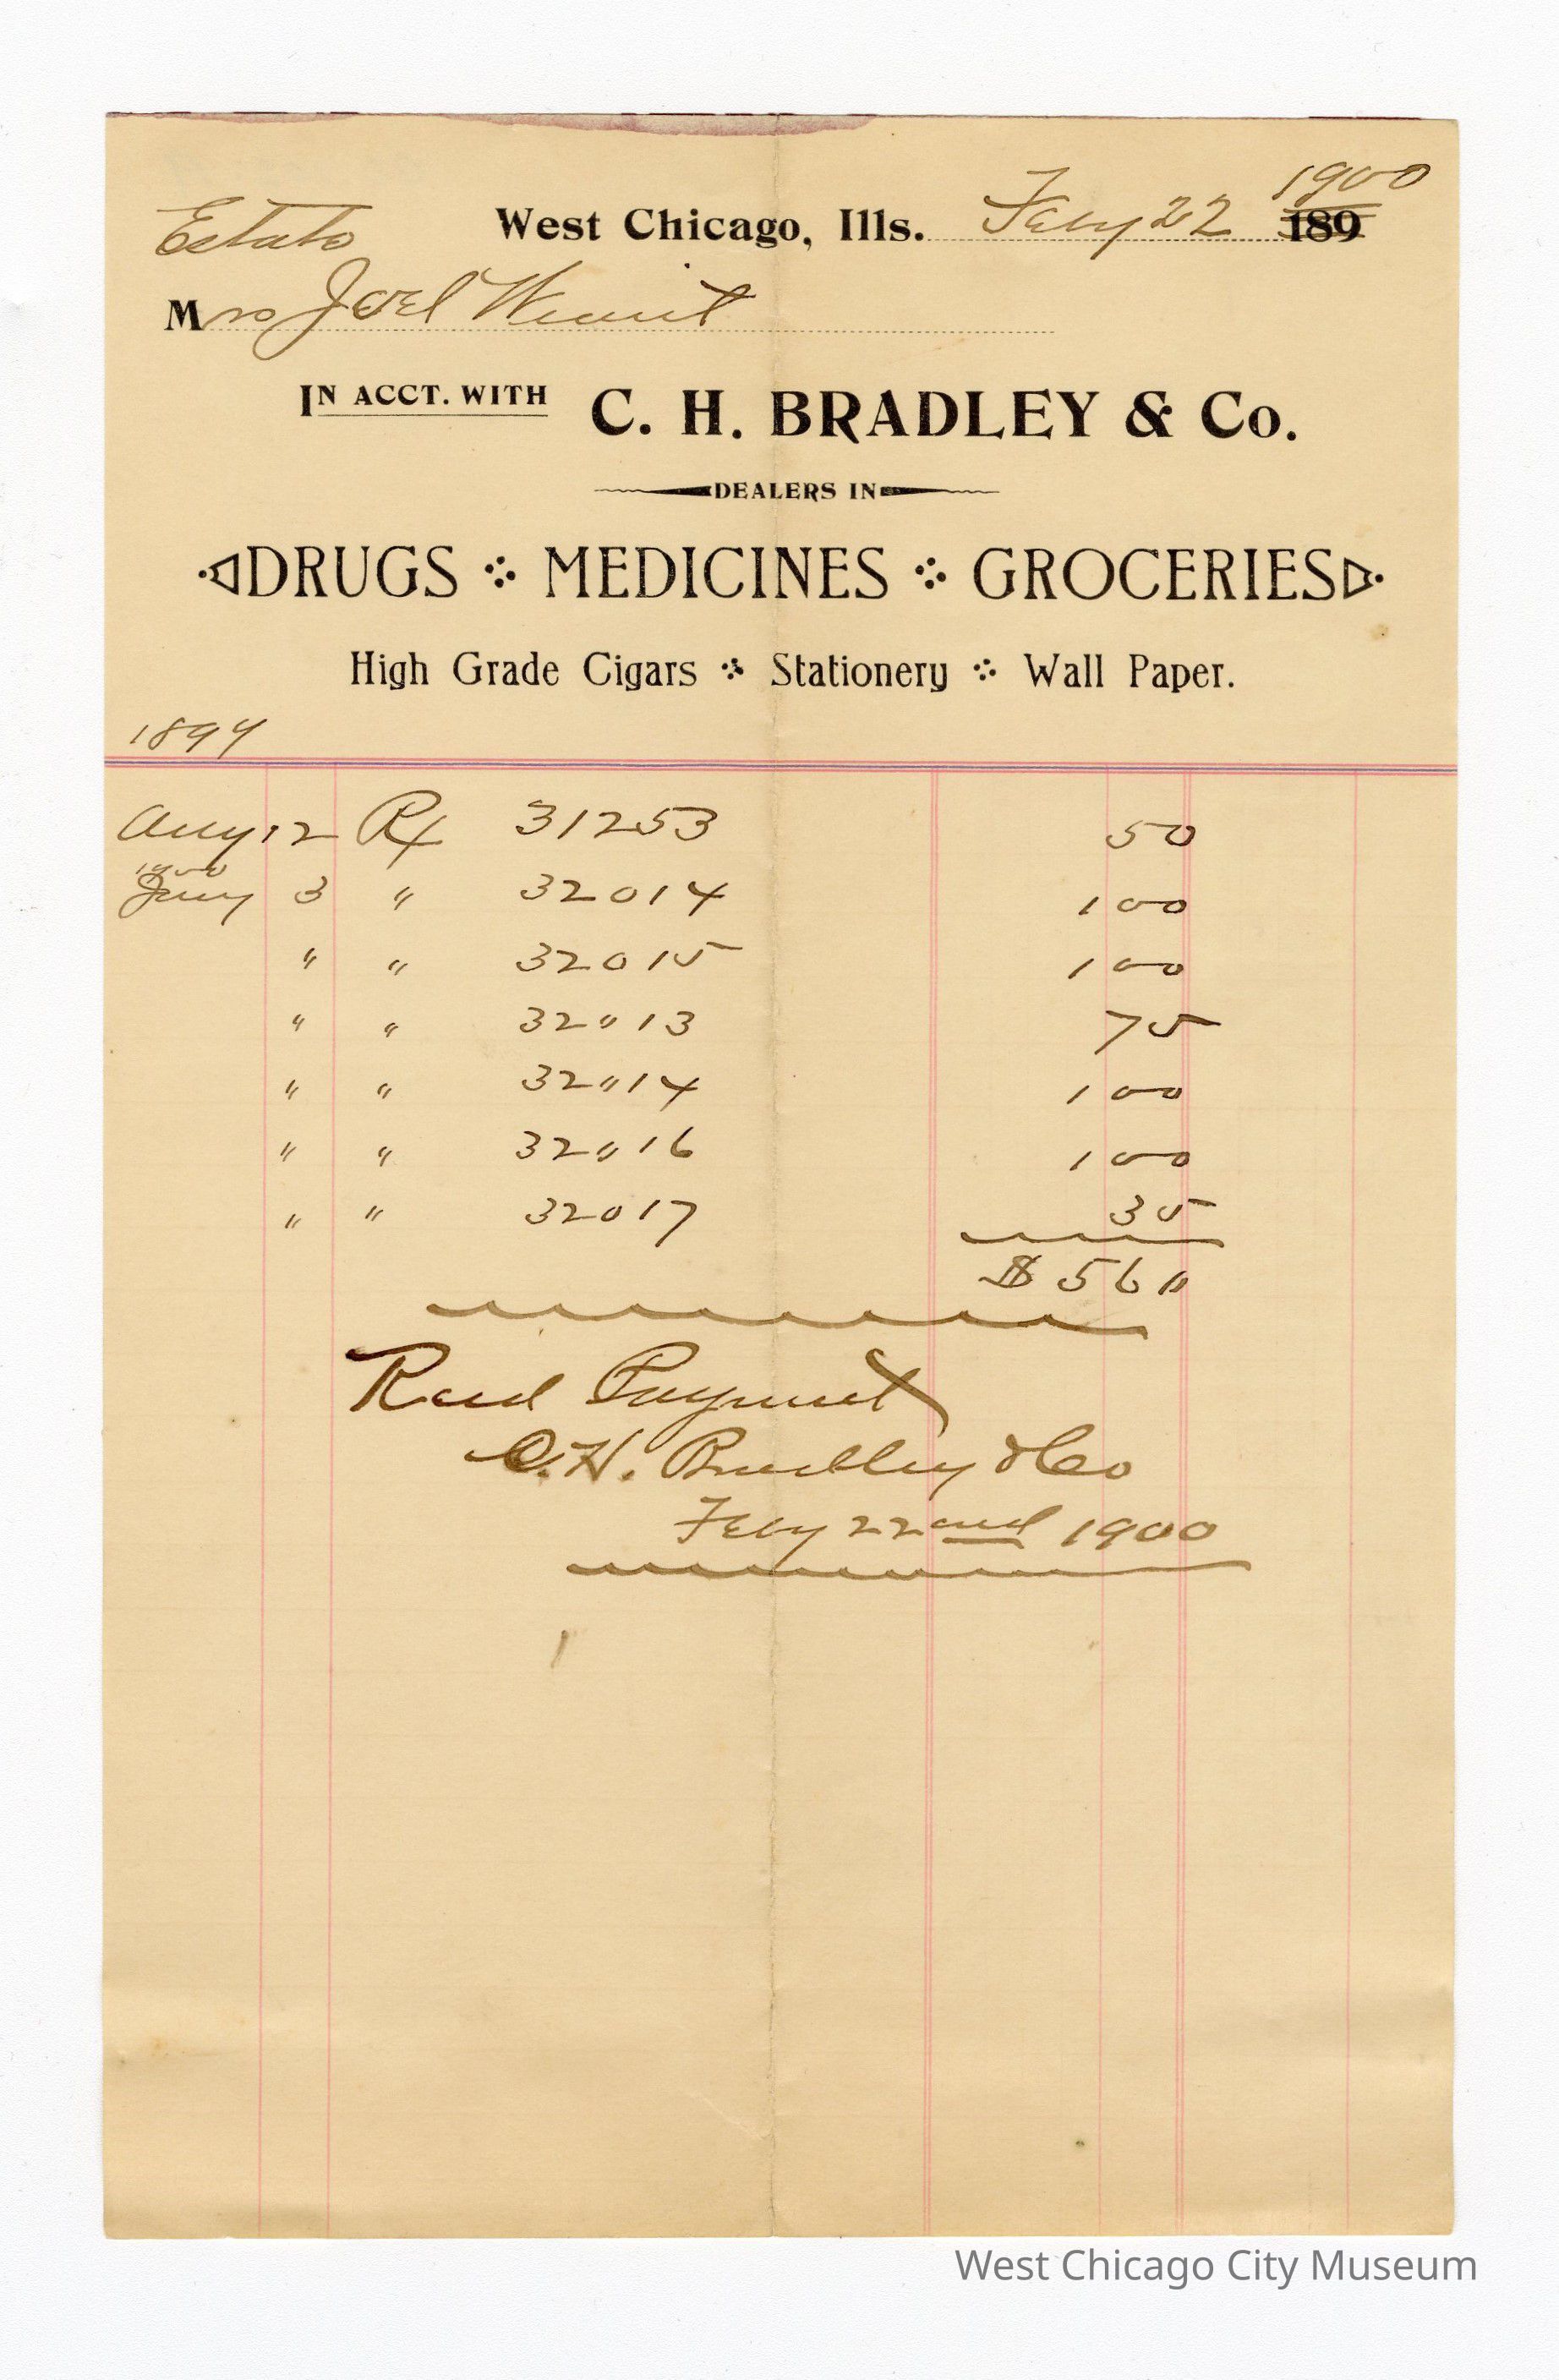 1900
West Chicago, Ills. Feby 22 189
Estate
Mrs Joel Wiant
IN ACCT. WITH C. H. BRADLEY & Co.
DEALERS IN
DRUGS MEDICINES GROCERIES
High Grade Cigars Stationery Wall Paper.
1899
Aug 12 Rx 31253 50
1900
Jany 3 " 32014 1 00
" " 32015 1 00
" " 32"13 75
" " 32"14 1 00
" " 32"16 1 00
" " 32017 35
$ 5 6"
Recd Payment
C. H. Bradley & Co
Feby 22nd 1900
West Chicago City Museum